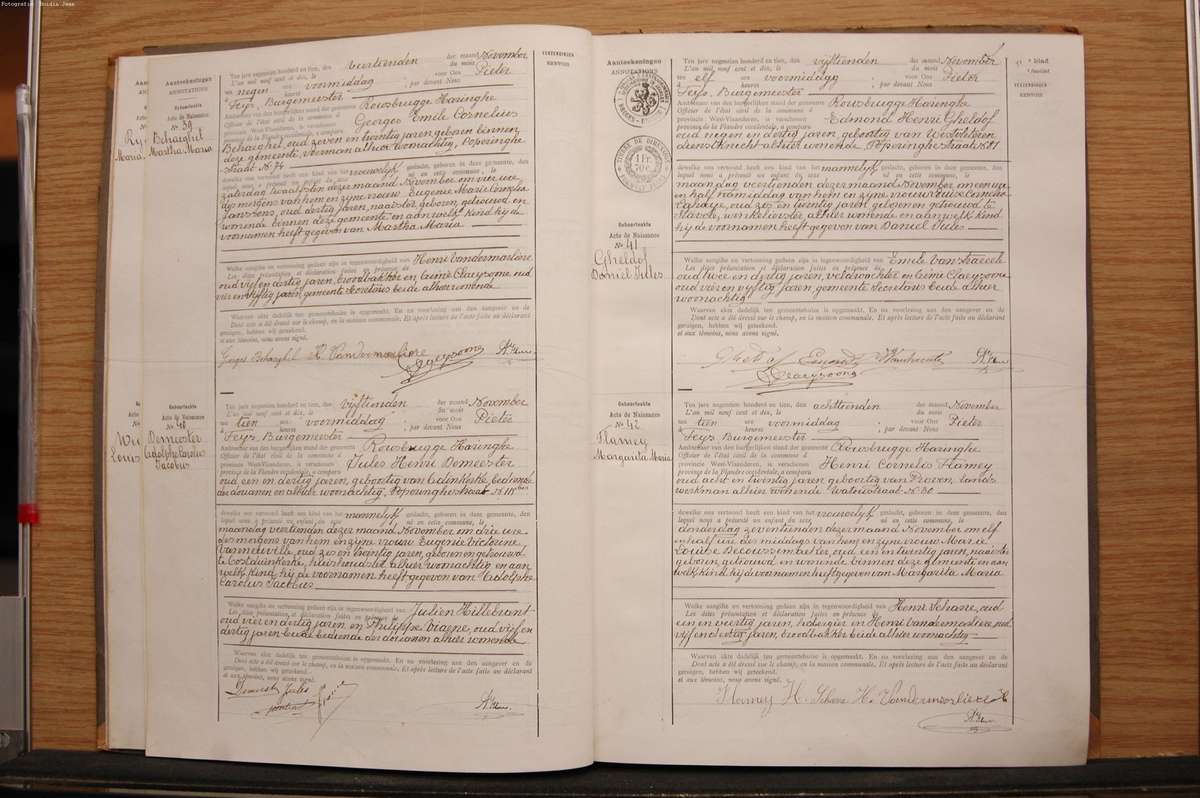 Fotografie: Buidia Jean
Aanteekeningen
ANNOTATIONS
Geboorteakte
Acte de Naissance
No 39
Behaeghel
Martha Maria
Ten jare negentien honderd en tien, den veertienden der maand November
L'an mil neuf cent et dix, le du mois
ten negen ure voormiddag voor Ons Pieter
heures ; par devant Nous
Feys, Burgemeester
Ambtenaar van den burgerlijken stand der gemeente Rousbrugge Haringhe
Officier de l'état civil de la commune à
provincie West-Vlaanderen, is verschenen Georges Emile Cornelius
province de la Flandre occidentale, a comparu
Behaeghel, oud zeven en twintig jaren geboren binnen
deze gemeente, voerman alhier woonachtig, Poperinghe
Straat No 74
dewelke ons vertoond heeft een kind van het vrouwelijk geslacht, geboren in deze gemeente, den
lequel nous a présenté un enfant du sexe né en cette commune, le
zaterdag twaalfsten dezer maand November om vier ure
des morgens van hem en zijne vrouw Eugenie Marie Cornelia
Janssens, oud dertig jaren, naaister, geboren, getrouwd en
wonende binnen deze gemeente en aan welk kind hij de
voornamen heeft gegeven van Martha Maria
Welke aangifte en vertooning gedaan zijn in tegenwoordigheid van Henri Vandermarliere
Les dites présentation et déclaration faites en présence de
oud vijf en dertig jaren, broodbakker en Crémé Claeysoone, oud
vier en vijftig jaren, gemeente Secretaris beide alhier wonende
Waarvan akte dadelijk ten gemeentehuize is opgemaakt. En na voorlezing aan den aangever en de
Dont acte a été dressé sur le champ, en la maison communale. Et après lecture de l'acte faite au déclarant
getuigen, hebben wij geteekend.
et aux témoins, nous avons signé.
Georges Behaeghel H. Vandermarliere
Claeysoone
Geboorteakte
Acte de Naissance
No 40
Demeester
Adolphe Carolus
Jacobus
Ten jare negentien honderd en tien, den vijftienden der maand November
L'an mil neuf cent et dix, le du mois
ten tien ure voormiddag voor Ons Pieter
heures ; par devant Nous
Feys, Burgemeester
Ambtenaar van den burgerlijken stand der gemeente Rousbrugge Haringhe
Officier de l'état civil de la commune à
provincie West-Vlaanderen, is verschenen Jules Henri Demeester
province de la Flandre occidentale, a comparu
oud een en dertig jaren, geboortig van Adinkerke, bediende
der douanen en alhier woonachtig, Poperinghe Straat No 115bis
dewelke ons vertoond heeft een kind van het mannelijk geslacht, geboren in deze gemeente, den
lequel nous a présenté un enfant du sexe né en cette commune, le
maandag veertienden dezer maand November om drie ure
des morgens van hem en zijne vrouw Eugenie Victorine
Vanneuville, oud zes en twintig jaren, geboren en getrouwd
te Oostduinkerke, huishoudster alhier woonachtig en aan
welk kind hij de voornamen heeft gegeven van Adolphe
Carolus Jacobus
Welke aangifte en vertooning gedaan zijn in tegenwoordigheid van Julien Hillebrant
Les dites présentation et déclaration faites en présence de
oud vier en dertig jaren, en Philippe Viaene, oud vijf en
dertig jaren beide bediende der douanen alhier wonende
Waarvan akte dadelijk ten gemeentehuize is opgemaakt. En na voorlezing aan den aangever en de
Dont acte a été dressé sur le champ, en la maison communale. Et après lecture de l'acte faite au déclarant
getuigen, hebben wij geteekend.
et aux témoins, nous avons signé.
VERZENDINGEN
RENVOIS
Aanteekeningen
ANNOTATIONS
Geboorteakte
Acte de Naissance
No 41
Gheldof
Daniel Jules
Ten jare negentien honderd en tien, den vijftienden der maand November
L'an mil neuf cent et dix, le du mois
ten elf ure voormiddag voor Ons Pieter
heures ; par devant Nous
Feys, Burgemeester
Ambtenaar van den burgerlijken stand der gemeente Rousbrugge Haringhe
Officier de l'état civil de la commune à
provincie West-Vlaanderen, is verschenen Edmond Henri Gheldof
province de la Flandre occidentale, a comparu
oud negen en dertig jaren, geboortig van Westvleteren
dienstknecht alhier wonende, Poperinghe Straat No 81
dewelke ons vertoond heeft een kind van het mannelijk geslacht, geboren in deze gemeente, den
lequel nous a présenté un enfant du sexe né en cette commune, le
maandag veertienden dezer maand November om een ure
en half namiddag van hem en zijne vrouw
oud zes en twintig jaren, geboren en getrouwd te
winkelierster alhier wonende en aan welk kind
hij de voornamen heeft gegeven van Daniel Jules
Welke aangifte en vertooning gedaan zijn in tegenwoordigheid van Emile Van
Les dites présentation et déclaration faites en présence de
oud twee en dertig jaren, veldwachter en Crémé Claeysoone
oud vier en vijftig jaren, gemeente Secretaris beide alhier
woonachtig
Waarvan akte dadelijk ten gemeentehuize is opgemaakt. En na voorlezing aan den aangever en de
Dont acte a été dressé sur le champ, en la maison communale. Et après lecture de l'acte faite au déclarant
getuigen, hebben wij geteekend.
et aux témoins, nous avons signé.
Claeysoone
Geboorteakte
Acte de Naissance
No 42
Flamey
Margarita Maria
Ten jare negentien honderd en tien, den achttienden der maand November
L'an mil neuf cent et dix, le du mois
ten tien ure voormiddag voor Ons Pieter
heures ; par devant Nous
Feys Burgemeester
Ambtenaar van den burgerlijken stand der gemeente Rousbrugge Haringhe
Officier de l'état civil de la commune à
provincie West-Vlaanderen, is verschenen Henri Cornelis Flamey
province de la Flandre occidentale, a comparu
oud acht en twintig jaren, geboortig van Proven, land
werkman alhier wonende Waterstraat No 30
dewelke ons vertoond heeft een kind van het vrouwelijk geslacht, geboren in deze gemeente, den
lequel nous a présenté un enfant du sexe né en cette commune, le
donderdag zeventienden dezer maand November om elf
en half ure des middags van hem en zijne vrouw Marie
Louise Decoussemaeker, oud een en twintig jaren, naaister
geboren getrouwd en wonende binnen deze gemeente en aan
welk kind hij de voornamen heeft gegeven van Margarita Maria
Welke aangifte en vertooning gedaan zijn in tegenwoordigheid van Henri Schare, oud
Les dites présentation et déclaration faites en présence de
een en veertig jaren, herbergier en Henri Vandermarliere, oud
vijf en dertig jaren, broodbakker beide alhier woonachtig
Waarvan akte dadelijk ten gemeentehuize is opgemaakt. En na voorlezing aan den aangever en de
Dont acte a été dressé sur le champ, en la maison communale. Et après lecture de l'acte faite au déclarant
getuigen, hebben wij geteekend.
et aux témoins, nous avons signé.
Flamey H. Schare H. Vandermarliere H
VERZENDINGEN
RENVOIS